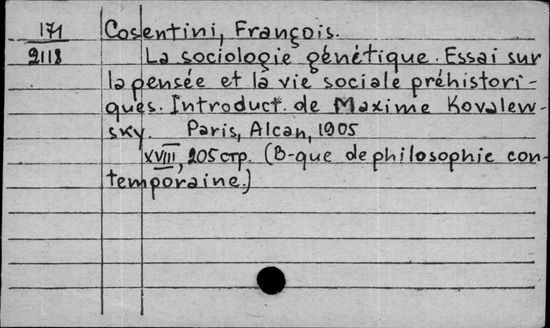 171
2118
Cosentini, François.
La sociologie génétique. Essai sur
la pensée et la vie sociale préhistori-
ques. Introduct. de Maxime Kovalew-
sky. Paris, Alcan, 1905
XVIII, 205 стр. (B-que de philosophie con-
temporaine.)